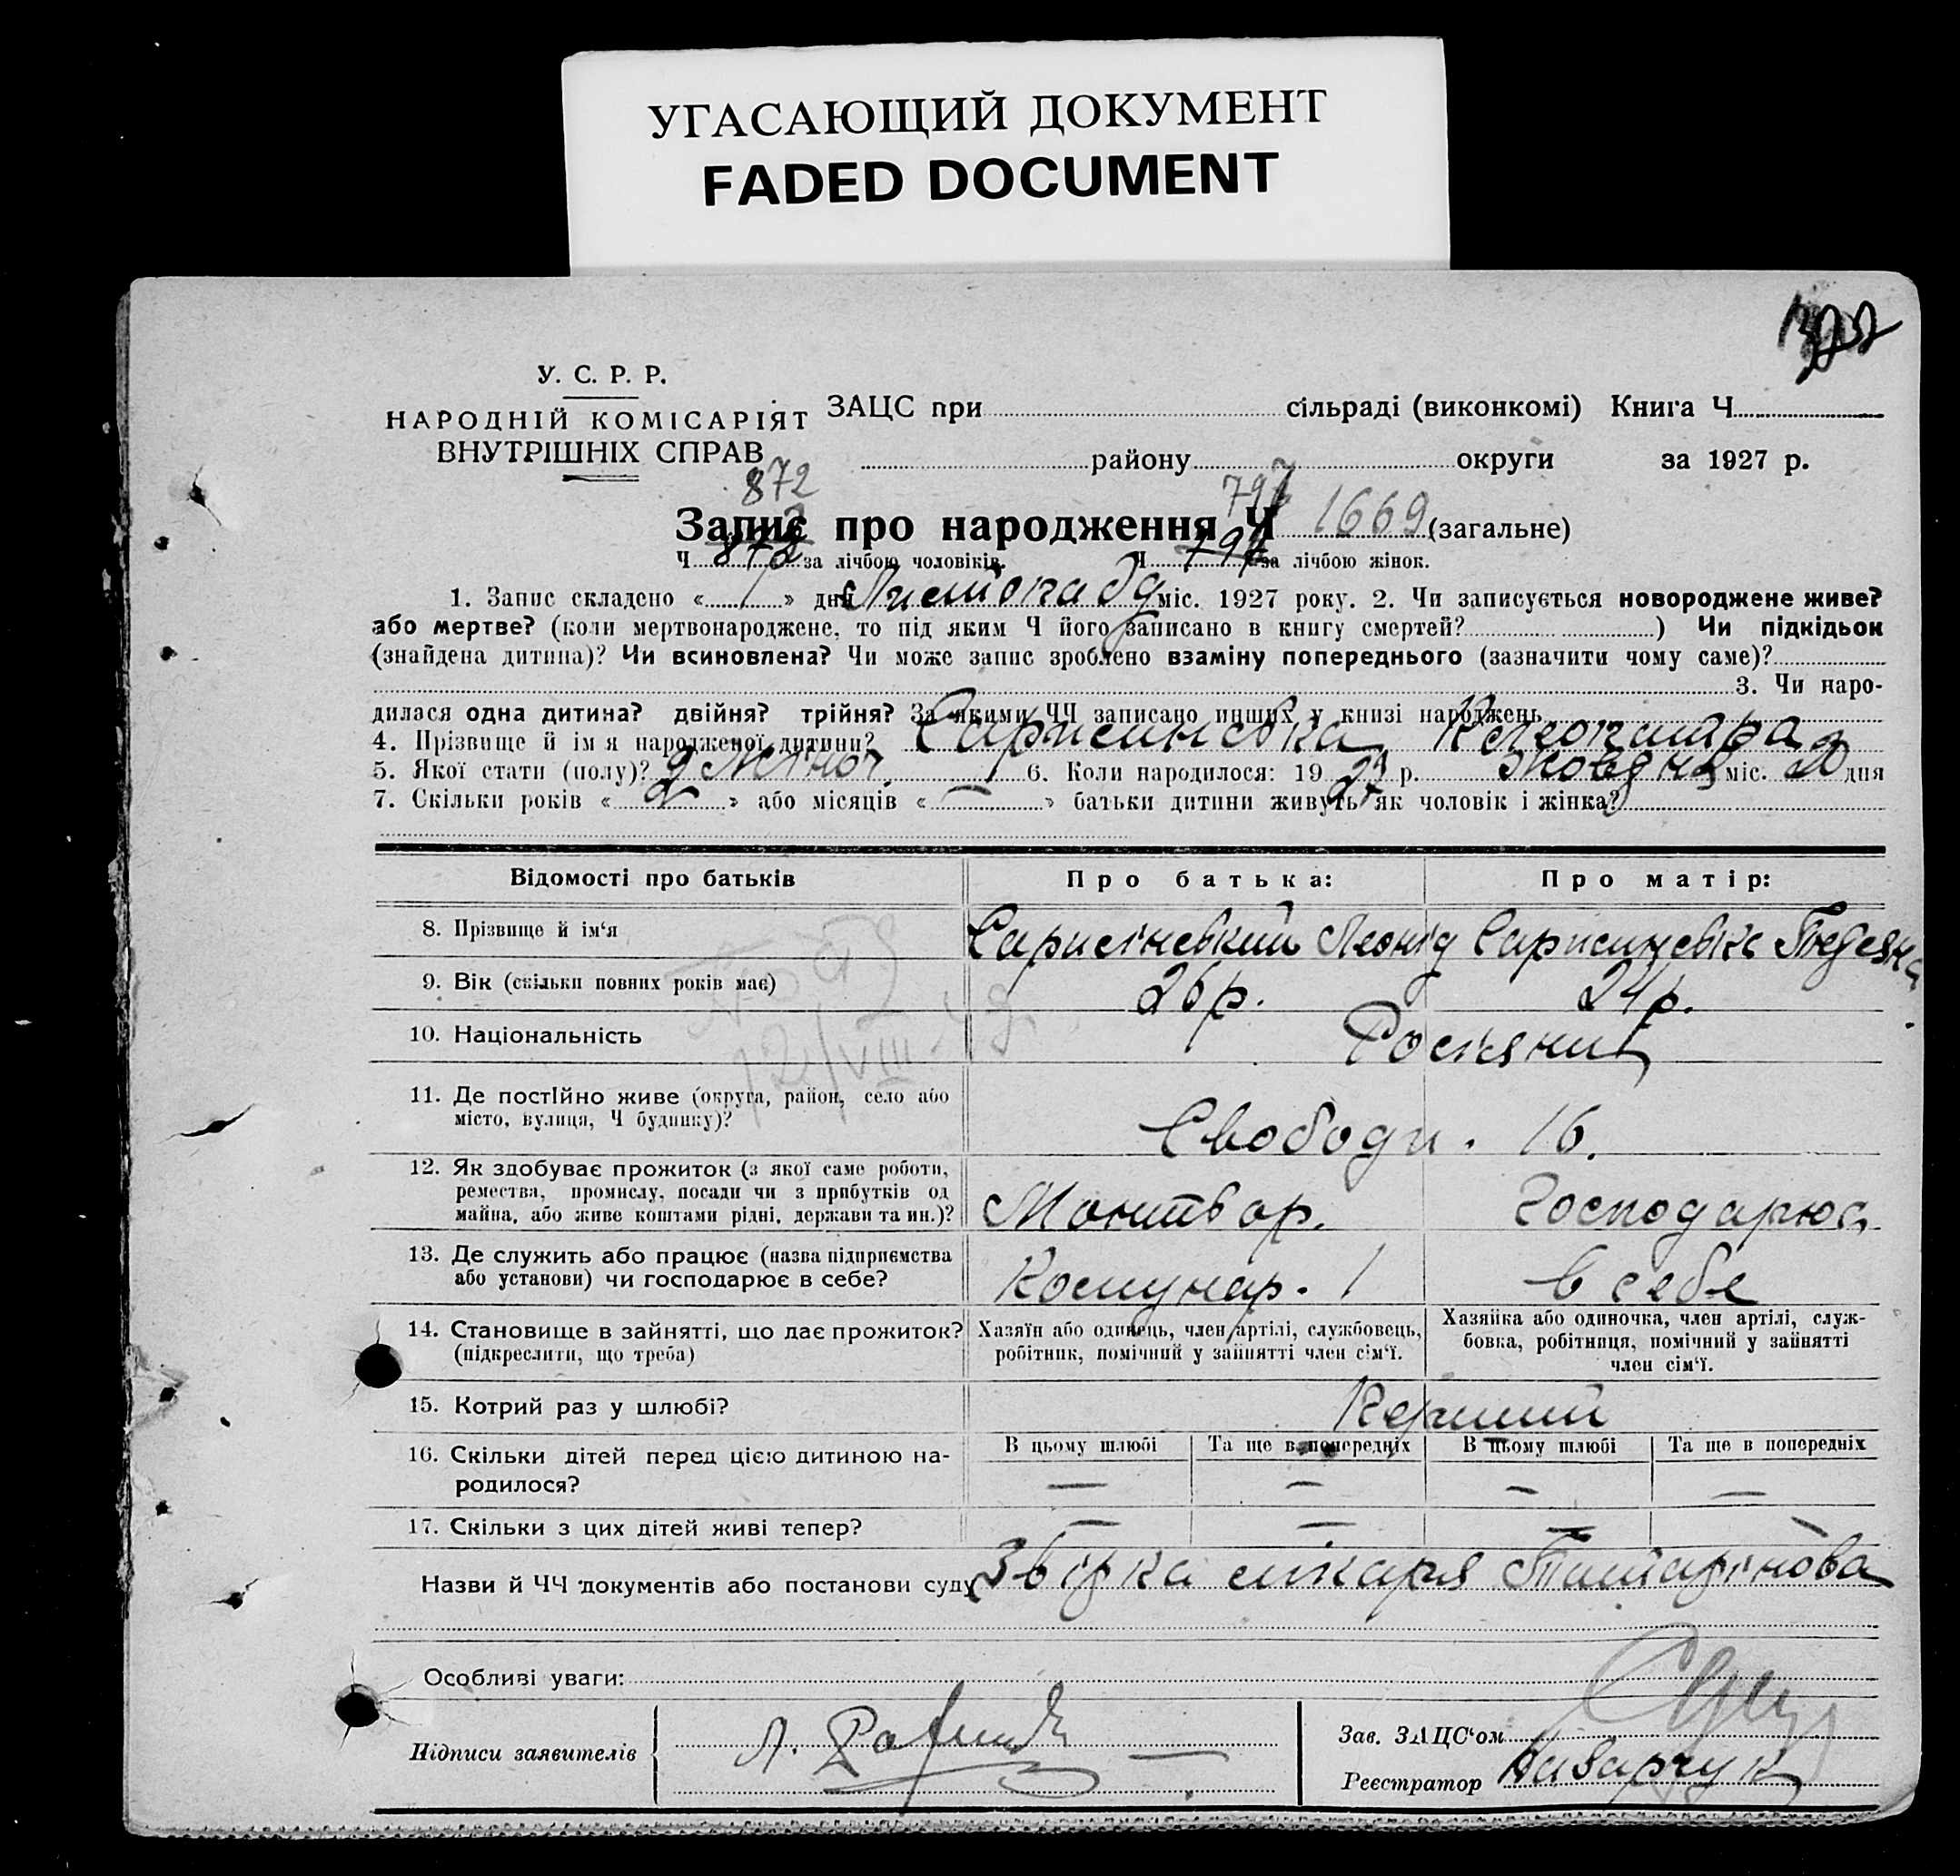 УГАСАЮЩИЙ ДОКУМЕНТ
FADED DOCUMENT
У. С. Р. Р.
НАРОДНІЙ КОМІСАРІЯТ
ВНУТРІШНІХ СПРАВ
ЗАЦС при сільраді (виконкомі) Книга Ч.
району округи за 1927 р.
872 797
Запис про народження Ч 1669 (загальне)
Ч 872 за лічбою чоловіків. Ч 797 за лічбою жінок.
1. Запис складено « 1 » дня Листопаду міс. 1927 року. 2. Чи записується новороджене живе?
або мертве? (коли мертвонароджене, то під яким Ч його записано в книгу смертей? ) Чи підкідьок
(знайдена дитина)? Чи всиновлена? Чи може запис зроблено взаміну попереднього (зазначити чому саме)?
3. Чи наро-
дилася одна дитина? двійня? трійня? За якими ЧЧ записано инших у книзі народжень
4. Прізвище й ім я народженої дитини? Клеопатра
5. Якої стати (полу)? 6. Коли народилося: 19 27 р. жовтня міс. 20 дня
7. Скільки років « 2 » або місяців « — » батьки дитини живуть як чоловік і жінка?
Відомості про батьків Про батька: Про матір:
8. Прізвище й ім‘я Леонід
9. Вік (скільки повних років має) 26 р. 24 р.
10. Національність
12/VIII
11. Де постійно живе (округа, район, село або
місто, вулиця, Ч будинку)? Свободи. 16.
12. Як здобуває прожиток (з якої саме роботи,
ремества, промислу, посади чи з прибутків од
майна, або живе коштами рідні, держави та ин.)? Господарює
13. Де служить або працює (назва підприємства
або установи) чи господарює в себе? Комунар. 1 в себе
14. Становище в зайнятті, що дає прожиток?
(підкреслити, що треба)
Хазяїн або одинець, член артілі, службовець,
робітник, помічний у зайнятті член сім‘ї.
Хазяйка або одиночка, член артілі, служ-
бовка, робітниця, помічний у зайнятті
член сім‘ї.
15. Котрий раз у шлюбі? Перший
16. Скільки дітей перед цією дитиною на-
родилося?
В цьому шлюбі Та ще в попередніх В цьому шлюбі Та ще в попередніх
— — — —
17. Скільки з цих дітей живі тепер? — — — —
Назви й ЧЧ документів або постанови суду лікаря
Особливі уваги:
Підписи заявителів
Зав. ЗАЦС‘ом
Реєстратор